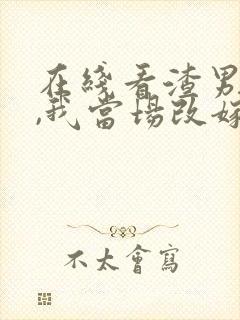 在綫看渣男
,我當場改嫁
不太會寫